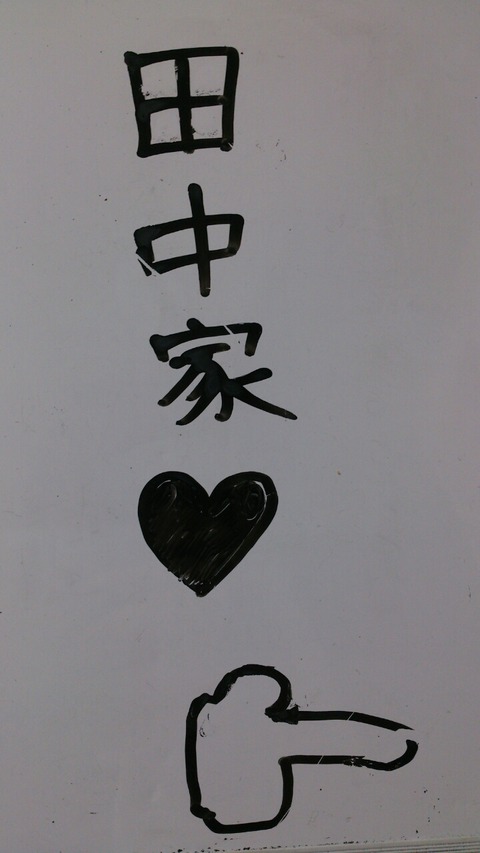 田中家